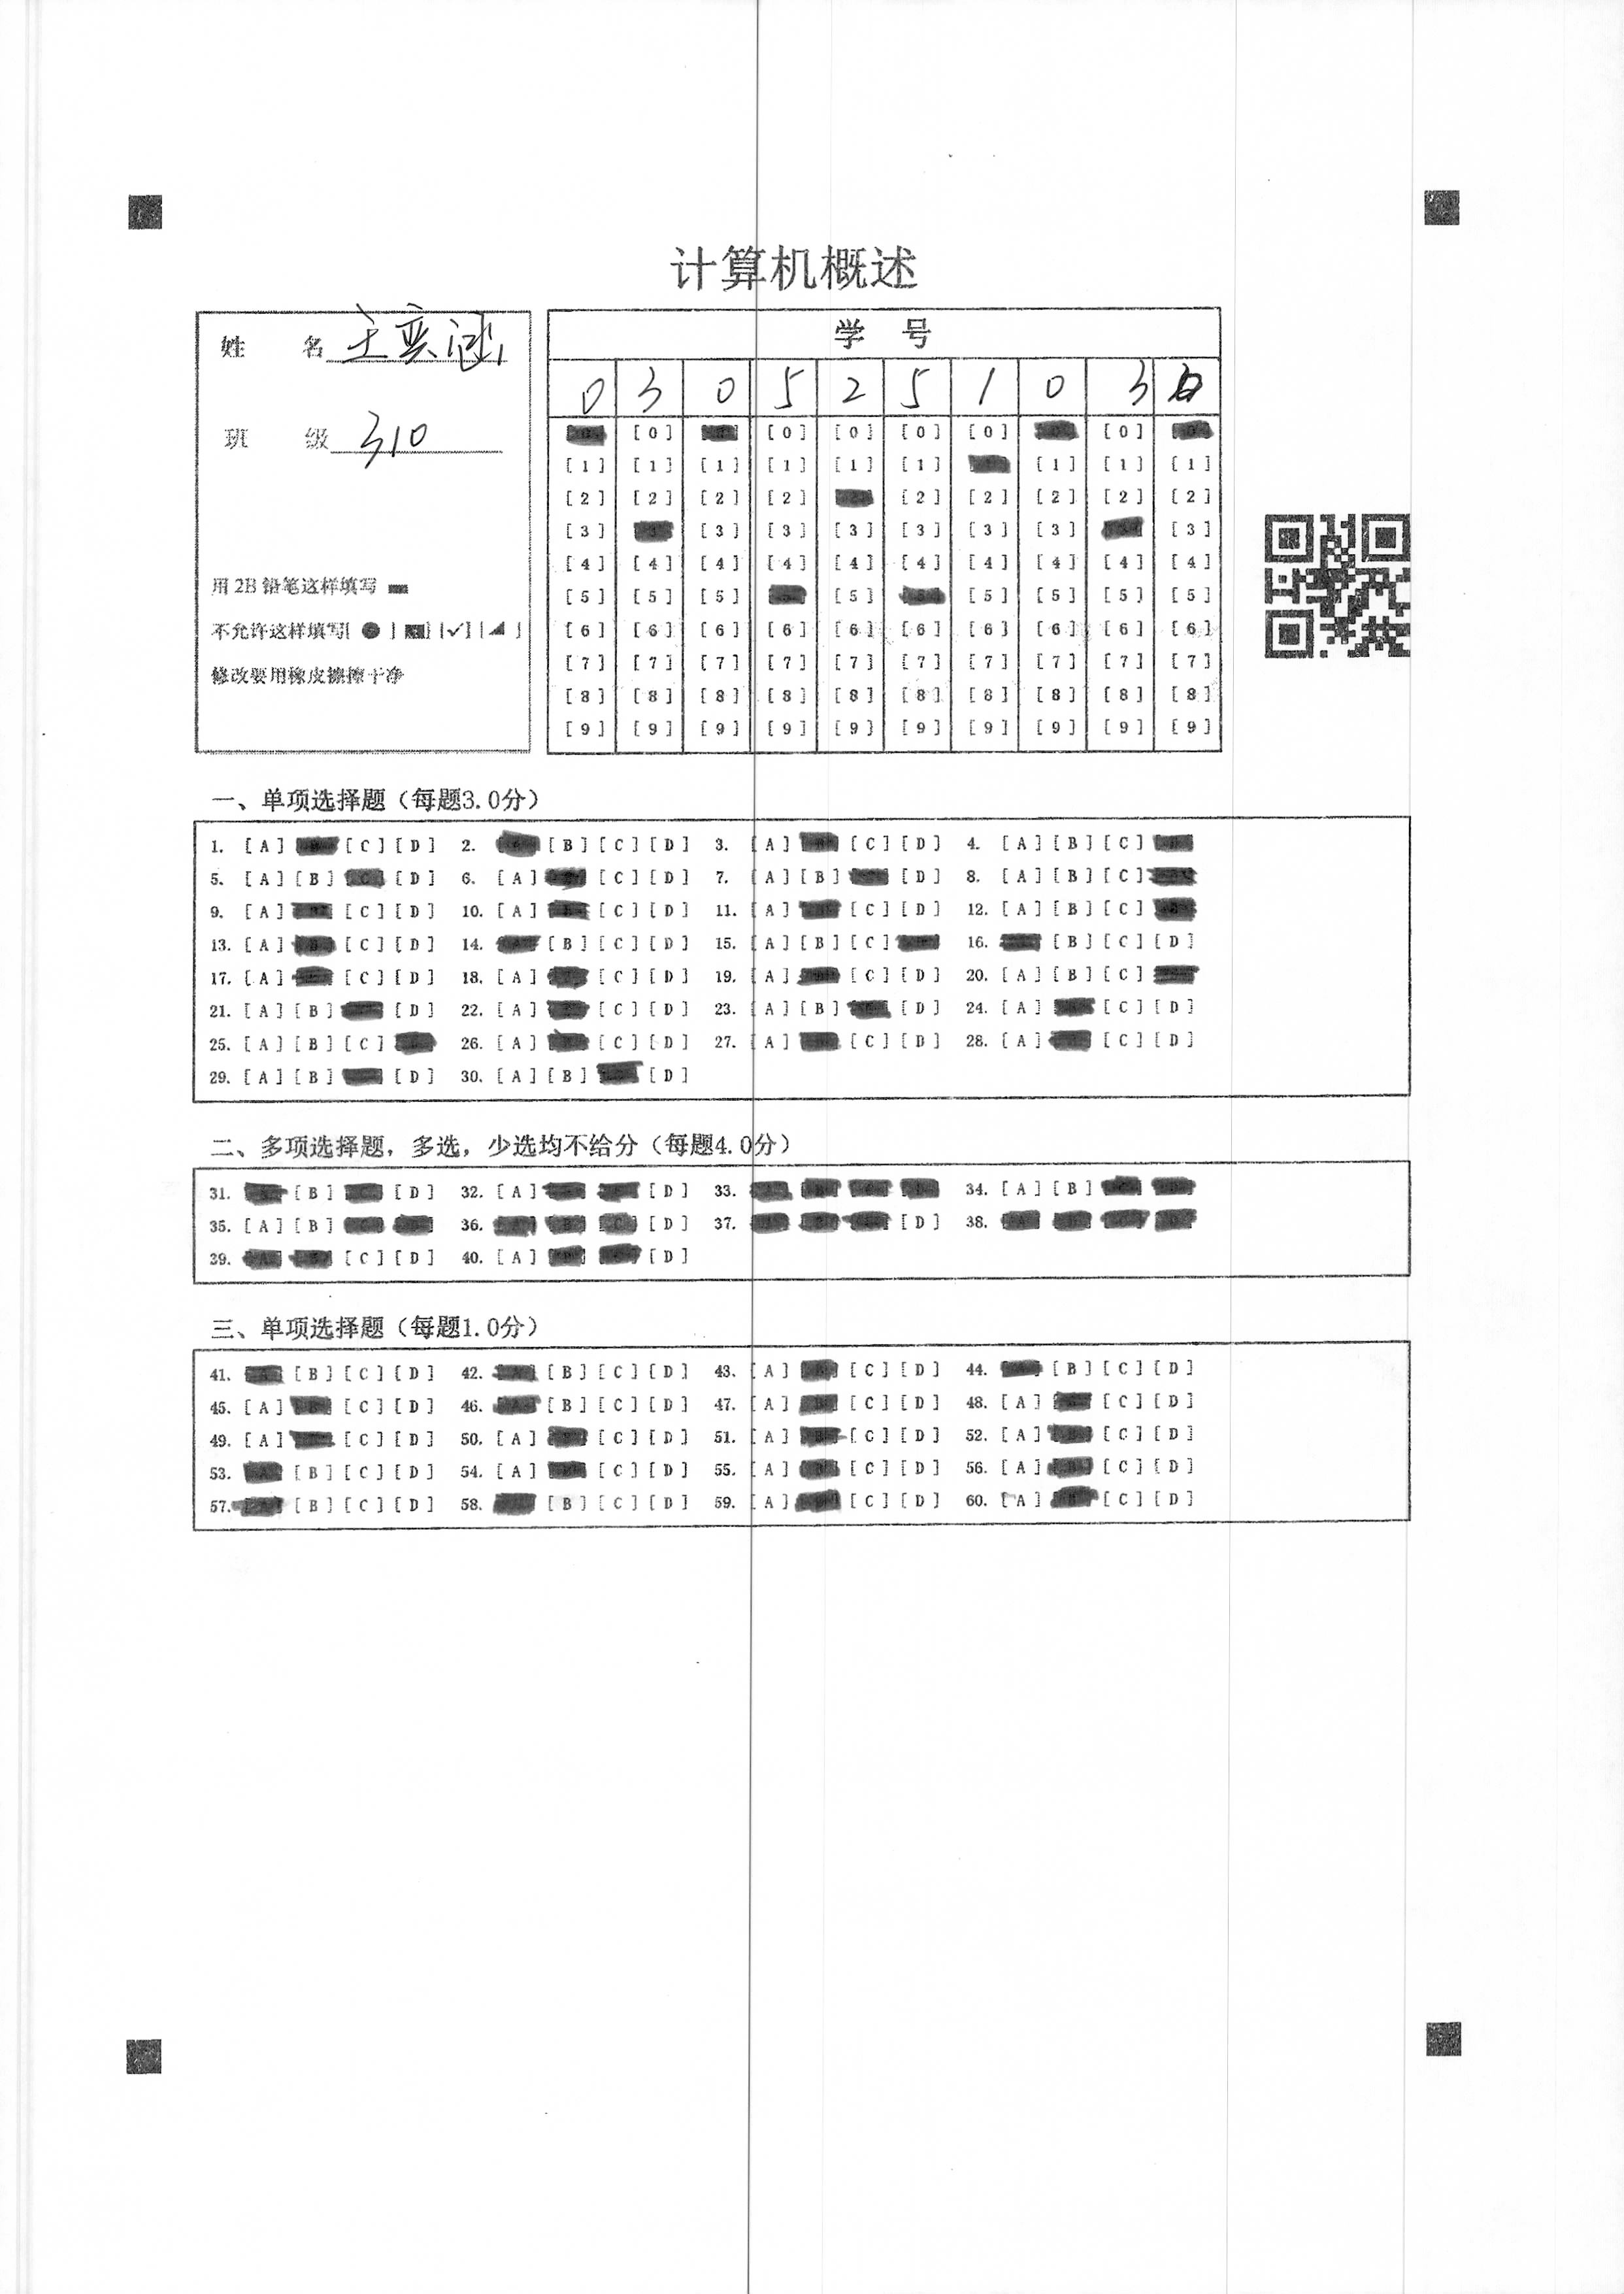 计算机概述
姓 名 王奕涵
班 级 310
用 2B 铅笔这样填写
不允许这样填写[ ● ] [ ] [✓] [ ]
修改要用橡皮擦擦干净
学 号
0 3 0 5 2 5 1 0 3
[0] [0] [0] [0] [0]
[1] [1] [1] [1] [1] [1] [1] [1] [1]
[2] [2] [2] [2] [2] [2] [2] [2] [2]
[3] [3] [3] [3] [3] [3] [3] [3]
[4] [4] [4] [4] [4] [4] [4] [4] [4] [4]
[5] [5] [5] [5] [5] [5] [5] [5]
[6] [6] [6] [6] [6] [6] [6] [6] [6] [6]
[7] [7] [7] [7] [7] [7] [7] [7] [7] [7]
[8] [8] [8] [8] [8] [8] [8] [8] [8] [8]
[9] [9] [9] [9] [9] [9] [9] [9] [9] [9]
一、单项选择题（每题3.0分）
1. [A] [C] [D] 2. [B] [C] [D] 3. [A] [C] [D] 4. [A] [B] [C]
5. [A] [B] [D] 6. [A] [C] [D] 7. [A] [B] [D] 8. [A] [B] [C]
9. [A] [C] [D] 10. [A] [C] [D] 11. [A] [C] [D] 12. [A] [B] [C]
13. [A] [C] [D] 14. [B] [C] [D] 15. [A] [B] [C] 16. [B] [C] [D]
17. [A] [C] [D] 18. [A] [C] [D] 19. [A] [C] [D] 20. [A] [B] [C]
21. [A] [B] [D] 22. [A] [C] [D] 23. [A] [B] [D] 24. [A] [C] [D]
25. [A] [B] [C] 26. [A] [C] [D] 27. [A] [C] [D] 28. [A] [C] [D]
29. [A] [B] [D] 30. [A] [B] [D]
二、多项选择题，多选，少选均不给分（每题4.0分）
31. [B] [D] 32. [A] [D] 33. 34. [A] [B]
35. [A] [B] 36. [D] 37. [D] 38.
39. [C] [D] 40. [A] [D]
三、单项选择题（每题1.0分）
41. [B] [C] [D] 42. [B] [C] [D] 43. [A] [C] [D] 44. [B] [C] [D]
45. [A] [C] [D] 46. [B] [C] [D] 47. [A] [C] [D] 48. [A] [C] [D]
49. [A] [C] [D] 50. [A] [C] [D] 51. [A] [C] [D] 52. [A] [C] [D]
53. [B] [C] [D] 54. [A] [C] [D] 55. [A] [C] [D] 56. [A] [C] [D]
57. [B] [C] [D] 58. [B] [C] [D] 59. [A] [C] [D] 60. [A] [C] [D]